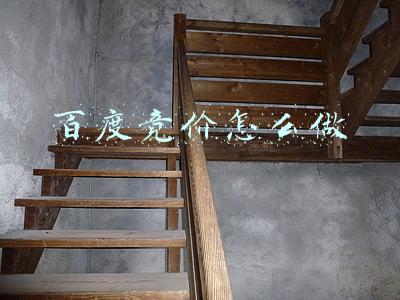 百度竞价怎么做